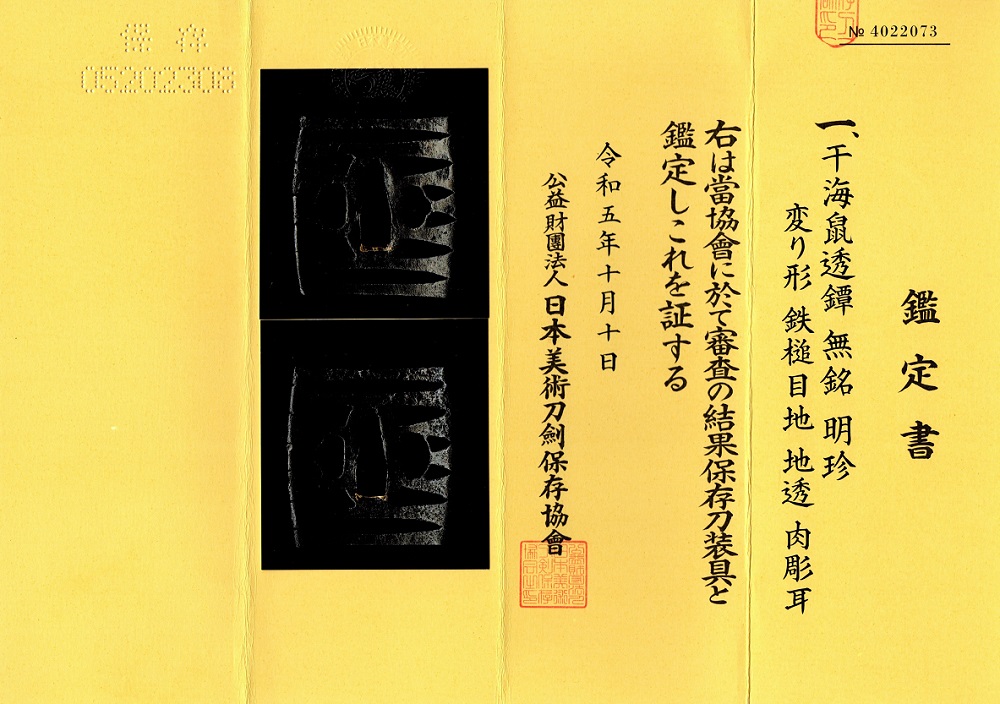 № 4022073
鑑定書
一、干海鼠透鐔 無銘 明珍
変り形 鉄槌目地 地透 肉彫耳
右は當協會に於て審査の結果保存刀装具と
鑑定しこれを証する
令和五年十月十日
公益財團法人 日本美術刀劍保存協會
保存
05202308